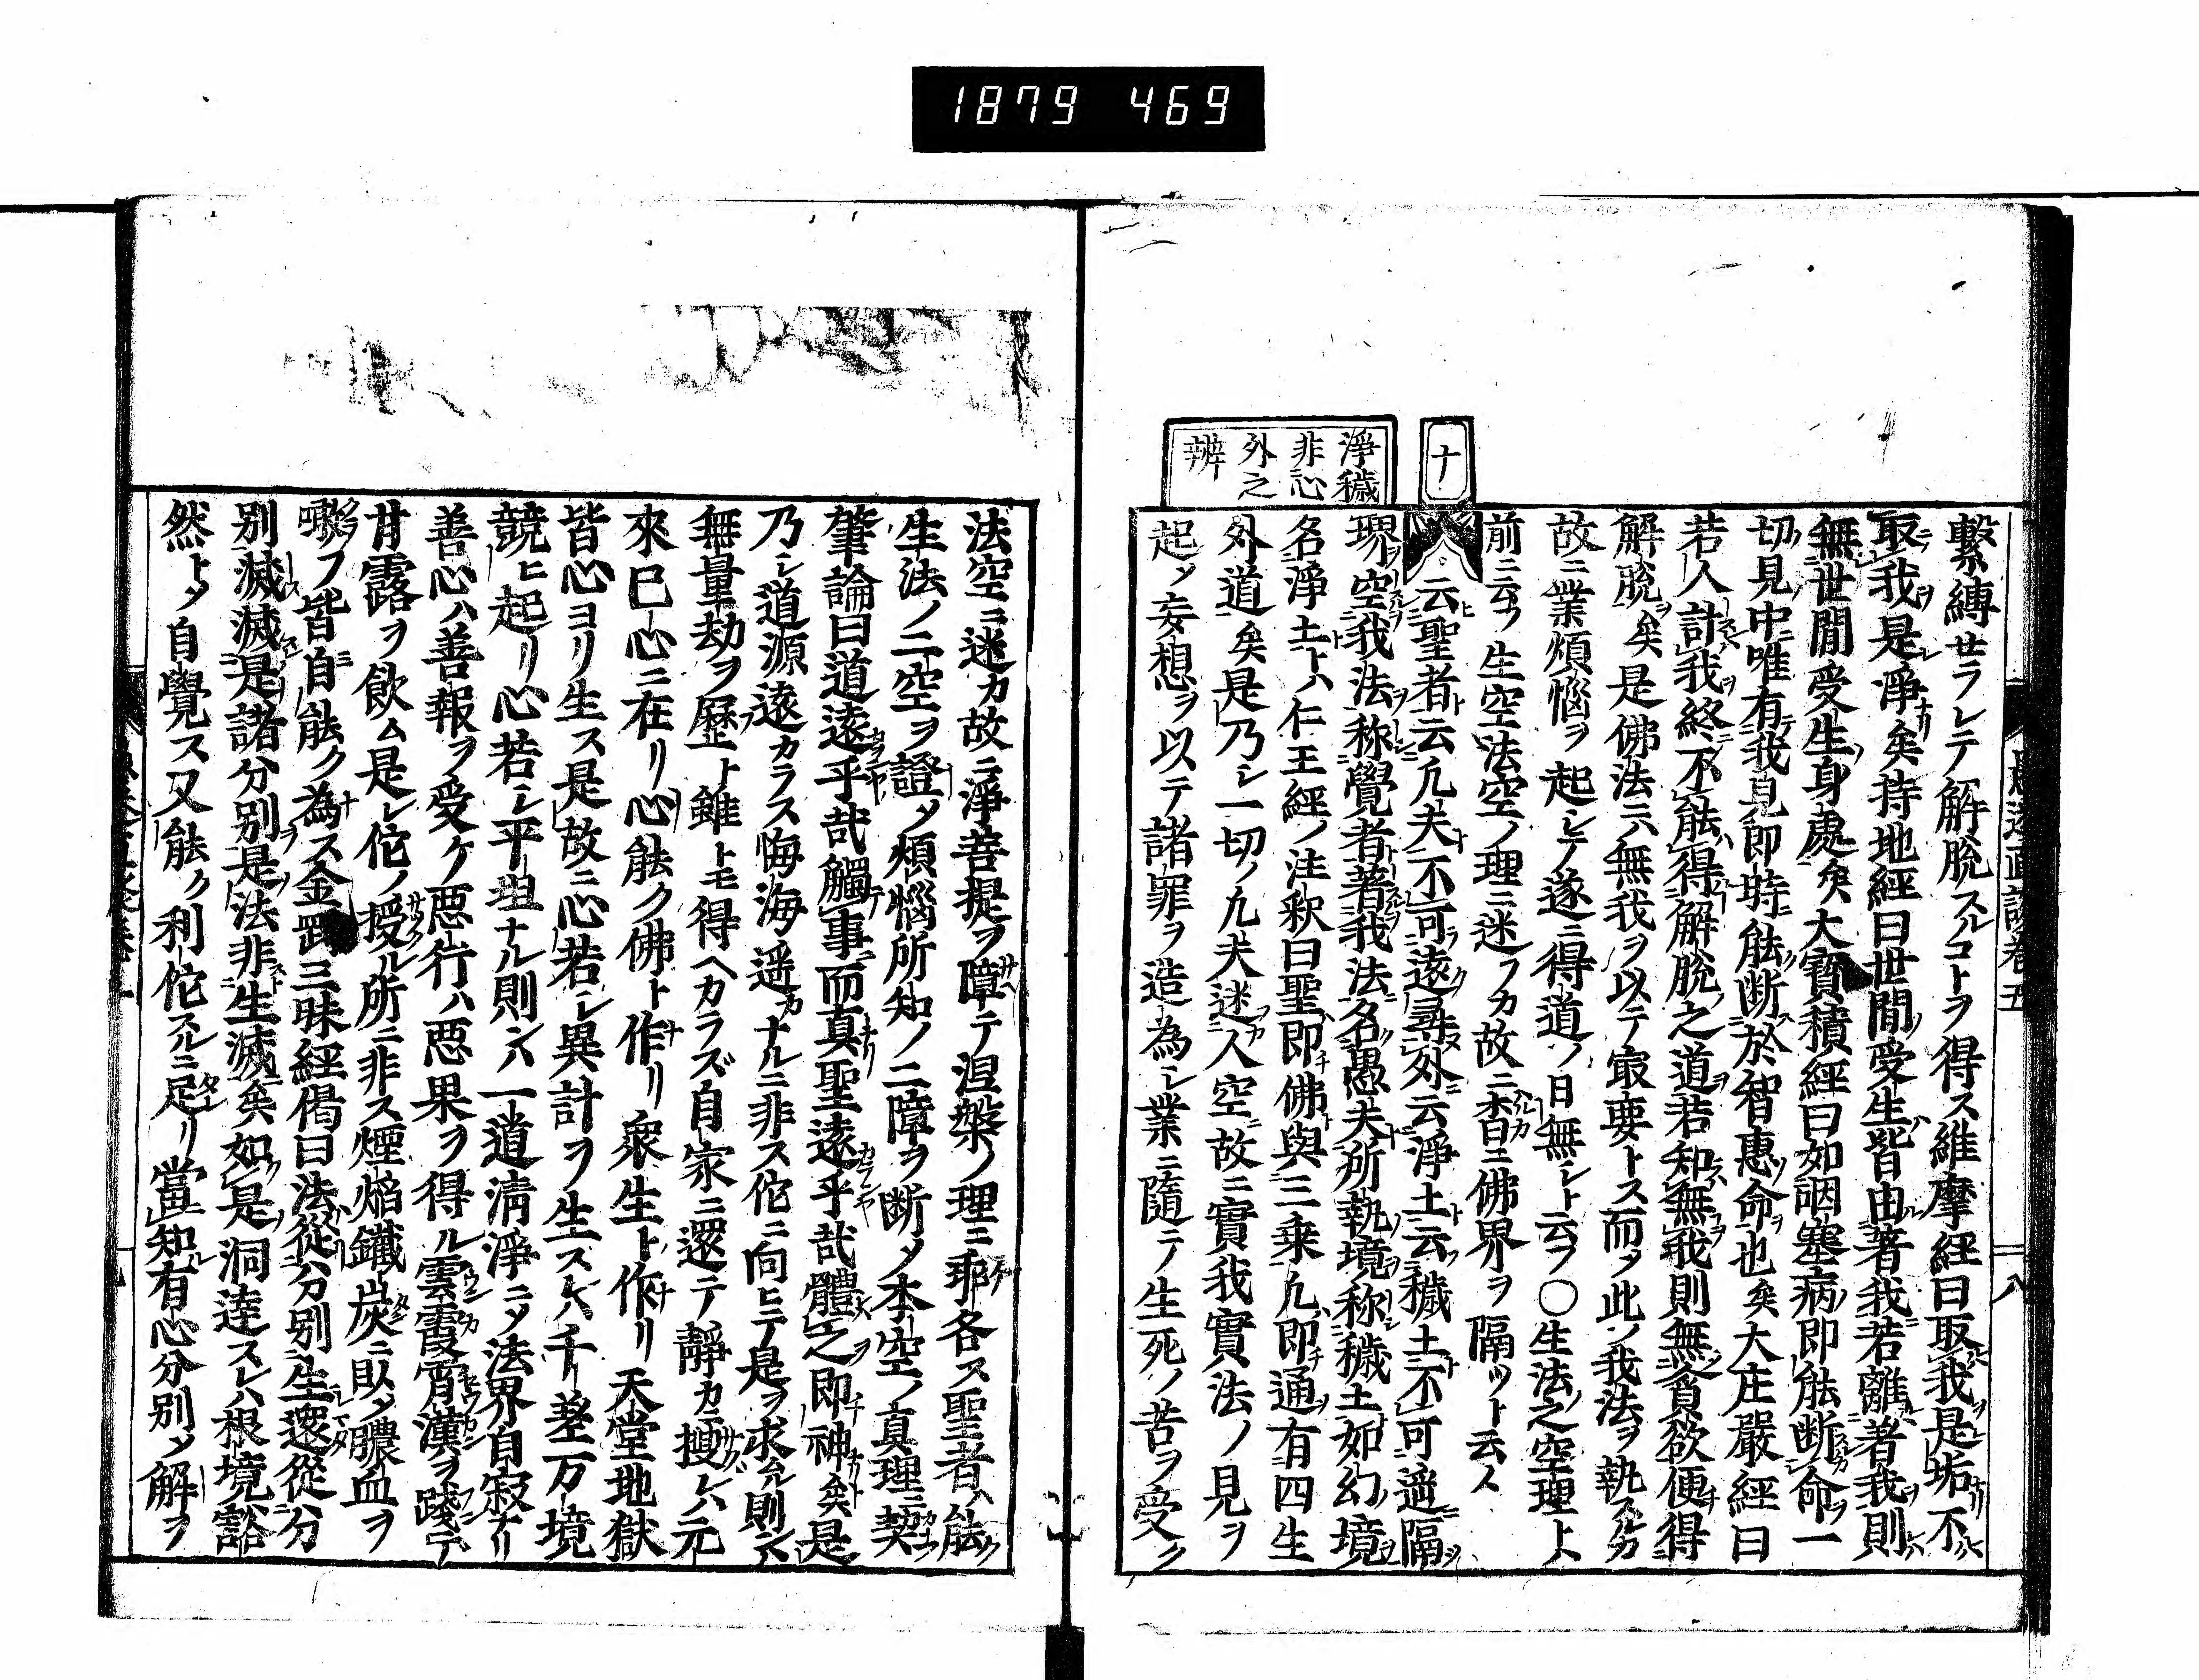 1879 469
繫縛セラレテ解脫スルコトヲ得ス維摩經曰取我是垢不
取我是淨矣持地經曰世間受生皆由著我若離著我則
無世間受生身處矣大寶積經曰如咽塞病即能断命一
切見中唯有我見即時能断於智惠命也矣大庄嚴經曰
若人計我終不能得解脫之道若知無我則無貪欲便得
解脫矣是佛法ニハ無我ヲ以テ㝡要トス而メ此ノ我法ヲ執スル
故ニ業煩惱ヲ起シテ遂ニ得道ノ日無シト云フ〇生法之空理ト
前ニ云フ生空法空ノ理ニ迷フカ故ニ杳ニ佛界ヲ隔ツト云ス
十
淨穢
非心
外之
辨
云聖者云凢夫不可遠尋外云淨土云穢土不可遥隔
堺空我法称覺者著我法名愚夫所執境称穢土如幻境
名淨土トハ仁王經ノ注釈曰聖即佛與三乗凢即通有四生
外道矣是乃シ一切ノ凢夫迷人空故ニ實我實法ノ見ヲ
起メ妄想ヲ以テ諸罪ヲ造為シ業ニ隨テ生死ノ苦ヲ受ク
法空ニ迷カ故ニ淨菩提ヲ障テ涅槃ノ理ニ乖各ス聖者ハ能ク
生法ノ二空ヲ證メ煩惱所知ノ二障ヲ断メ本空ノ真理ニ契
肇論曰道遠乎哉觸事而真聖遠乎哉體之即神矣是
乃シ道源遠カラス悔海遥ナルニ非ス佗ニ向ヒテ是ヲ求ムル則ンハ
無量劫ヲ歷ト雖トモ得ヘカラズ自家ニ還テ靜カニ搜レハ元
來已心ニ在リ心能ク佛ト作リ衆生ト作リ天堂地獄
皆心ヨリ生ス是故ニ心若シ異計ヲ生スレハ千差万境
競ヒ起リ心若シ平坦ナル則ンハ一道淸淨ニメ法界自寂ナリ
善心ハ善報ヲ受ケ悪行ハ悪果ヲ得ル雲霞霄漢ヲ踐テ
甘露ヲ飲ム是レ佗ノ授ル所ニ非ス煙焔鑯炭ニ臥メ膿血ヲ
噉フ皆自能ク為ス金剛三昧經偈曰法從分别生還從分
别滅滅是諸分别是法非生滅矣如是洞達スレハ根境豁
然トメ自覺ス又能ク利佗スルニ足リ當知有心分别メ解ヲ